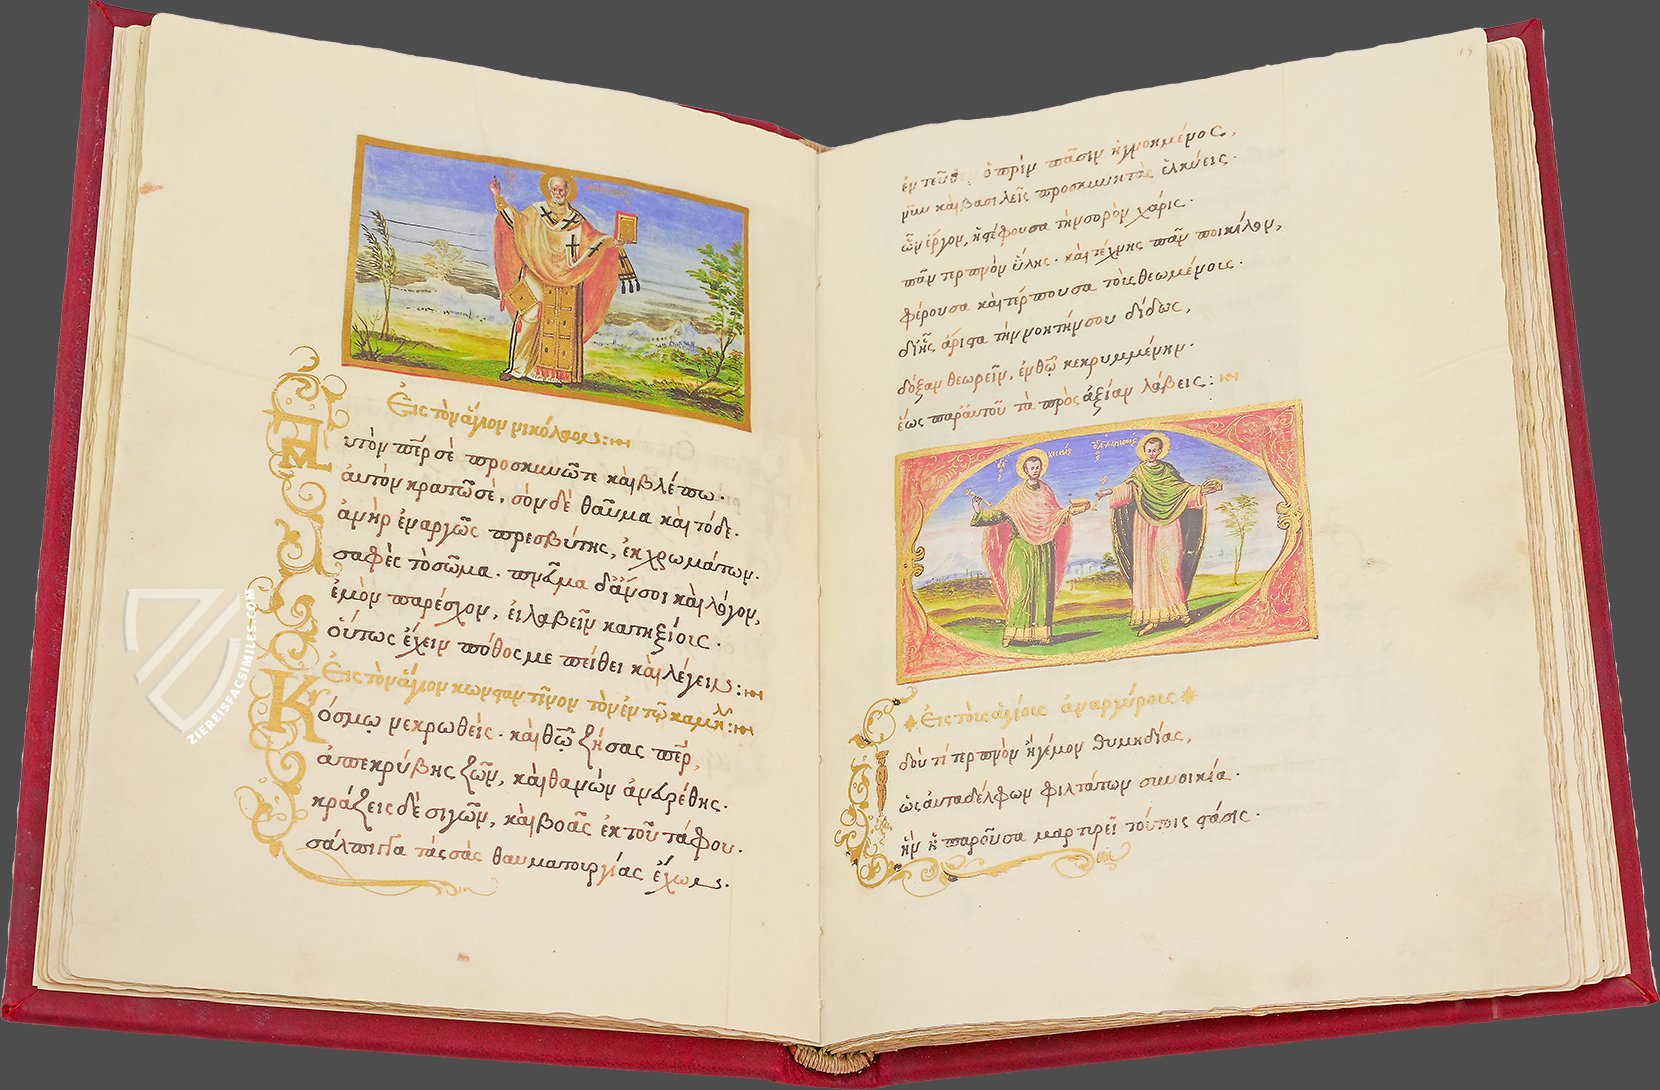 Εἰς τὸν ἅγιον νικόλαον:
Αὐτὸν πὲρ σὲ προσκυνῶ τε καὶ βλέπω.
αὐτὸν κρατῶ σὲ, σὸν δὲ θαῦμα καὶ τόδε.
ἀνὴρ ἐναργῶς πρεσβύτης, ἐκ χρωμάτων.
σαφὲς τὸ σῶμα. πνεῦμα δ' ἄν σοι καὶ λόγον,
ἐμὸν παρέσχον, εἰ λαβεῖν κατηξίοις.
οὕτως ἔχειν πόθος με πείθει καὶ λέγειν:
Εἰς τὸν ἅγιον κωνσταντῖνον τὸν ἐν τῶ
Κόσμῳ νεκρωθείς. καὶ θῷ ζήσας
ἀπεκρύβης ζῶν, καὶ θανὼν ἀνευρέθης.
κράζεις δὲ σιγῶν, καὶ βοᾶς ἐκ τοῦ τάφου.
σάλπιγγα τὰς σὰς θαυματουργίας ἔχων.
15
ἐντεῦθεν ὁ πρὶν πᾶσιν ἠγνοημένος,
νῦν καὶ βασιλεῖς προσκυνητὰς ἑλκύεις.
ὧν ἔργον, ἡ φέρουσα τὴν σορὸν χάρις.
πᾶν τερπνὸν ὕλης. καὶ τέχνης πᾶν ποικίλον,
φέρουσα καὶ τέρπουσα τοὺς θεωμένους.
δι' ἧς ἄριστα τὴν νοητήν σου δίδως,
δόξαν θεωρεῖν, ἐν θῷ κεκρυμμένην.
ἕως παρ' αὐτοῦ τὰ πρὸς ἀξίαν λάβεις:
Εἰς τοὺς ἁγίους ἀναργύρους
Ἰδοὺ τί τερπνὸν ἡγέμον θυμηδίας,
ὡς αὐταδέλφων φιλτάτων συνοικία.
ἣν ἡ παροῦσα μαρτυρεῖ τούτοις στάσις.
ZIEREISFACSIMILES.COM